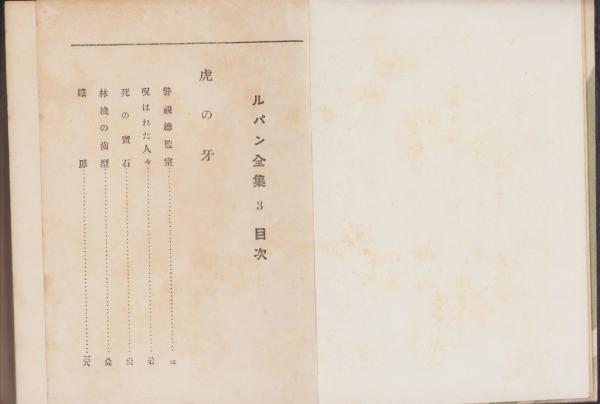 ルパン全集 3 目次
虎の牙
警視總監室
呪はれた人々
死の寶石
林檎の齒型
鐵扉